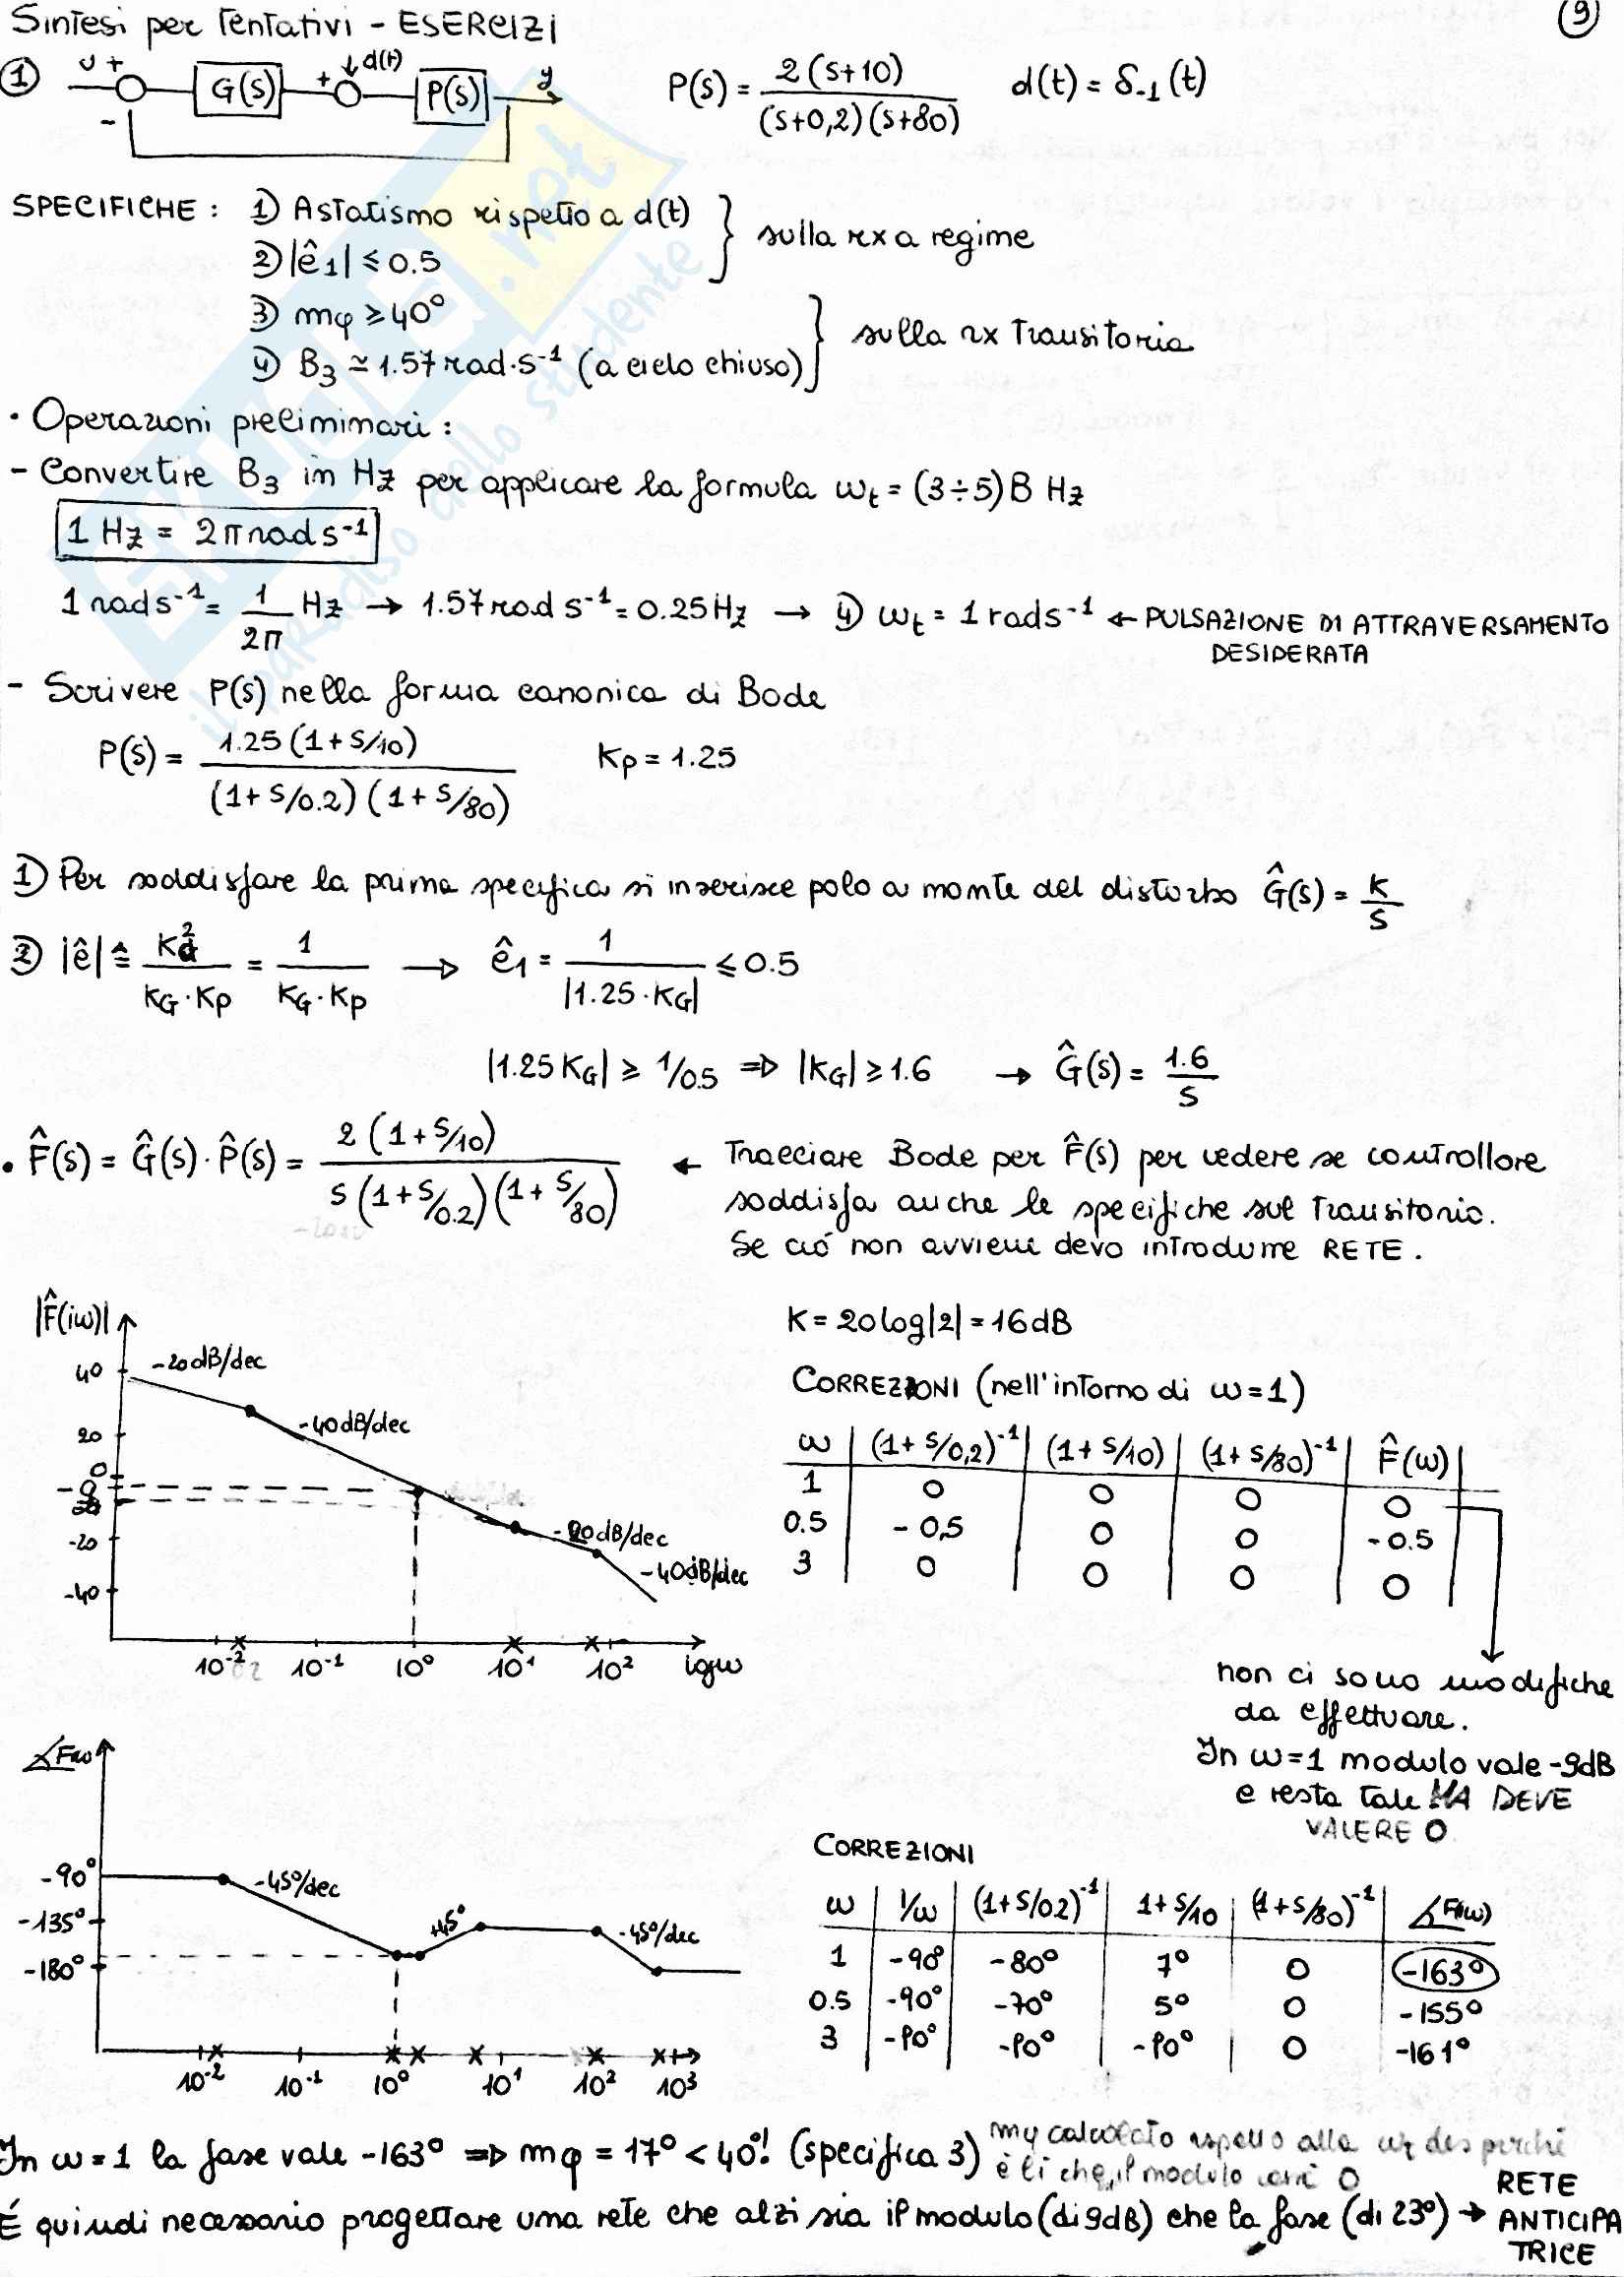 Sintesi per Tentativi - ESERCIZI
9
1 U + - G(s) + d(t) P(s) y P(s) = 2(s+10) / (s+0,2)(s+80) d(t) = δ-1(t)
SPECIFICHE: 1) Astatismo rispetto a d(t)
2) |ê1| ≤ 0.5
} sulla rx a regime
3) mφ ≥ 40°
4) B3 ≃ 1.57 rad·s⁻¹ (a ciclo chiuso)
} sulla rx Transitoria
• Operazioni preliminari:
- Convertire B3 in Hz per applicare la formula ωt = (3÷5) B Hz
1 Hz = 2π rad s⁻¹
1 rad s⁻¹ = 1/2π Hz → 1.57 rad s⁻¹ = 0.25 Hz → 4) ωt = 1 rad s⁻¹ ← PULSAZIONE DI ATTRAVERSAMENTO
DESIDERATA
- Scrivere P(s) nella forma canonica di Bode
P(s) = 1.25 (1+s/10) / (1+s/0.2)(1+s/80) Kp = 1.25
1) Per soddisfare la prima specifica si inserisce polo a monte del disturbo Ĝ(s) = K/s
2) |ê| ≙ Kd² / KG·Kp = 1 / KG·Kp → ê1 = 1 / |1.25·KG| ≤ 0.5
|1.25 KG| ≥ 1/0.5 ⇒ |KG| ≥ 1.6 → Ĝ(s) = 1.6/s
• F̂(s) = Ĝ(s)·P̂(s) = 2(1+s/10) / s(1+s/0.2)(1+s/80) ← Tracciare Bode per F̂(s) per vedere se controllore
soddisfa anche le specifiche sul Transitorio.
Se ciò non avviene devo introdurre RETE.
|F̂(iω)|
40
20
0
-9
-20
-40
-20dB/dec
-40dB/dec
-20dB/dec
-40dB/dec
10⁻² 10⁻¹ 10⁰ 10¹ 10² lgω
K = 20log|2| = 16dB
CORREZIONI (nell'intorno di ω=1)
ω | (1+s/0,2)⁻¹ | (1+s/10) | (1+s/80)⁻¹ | F̂(ω)
1 0 0 0 0
0.5 -0,5 0 0 -0.5
3 0 0 0 0
non ci sono modifiche
da effettuare.
In ω=1 modulo vale -9dB
e resta tale MA DEVE
VALERE 0
∡F(ω)
-90°
-135°
-180°
-45°/dec
+45°
-45°/dec
10⁻² 10⁻¹ 10⁰ 10¹ 10² 10³
CORREZIONI
ω | 1/ω | (1+s/0.2)⁻¹ | 1+s/10 | (1+s/80)⁻¹ | ∡F(ω)
1 -90° -80° 7° 0 -163°
0.5 -90° -70° 5° 0 -155°
3 -90° -90° -90° 0 -161°
In ω=1 la fase vale -163° ⇒ mφ = 17° < 40°! (specifica 3) mφ calcolato rispetto alla ωt des perché
è lì che il modulo 0
È quindi necessario progettare una rete che alzi sia il modulo (di 9dB) che la fase (di 23°) → RETE
ANTICIPA
TRICE